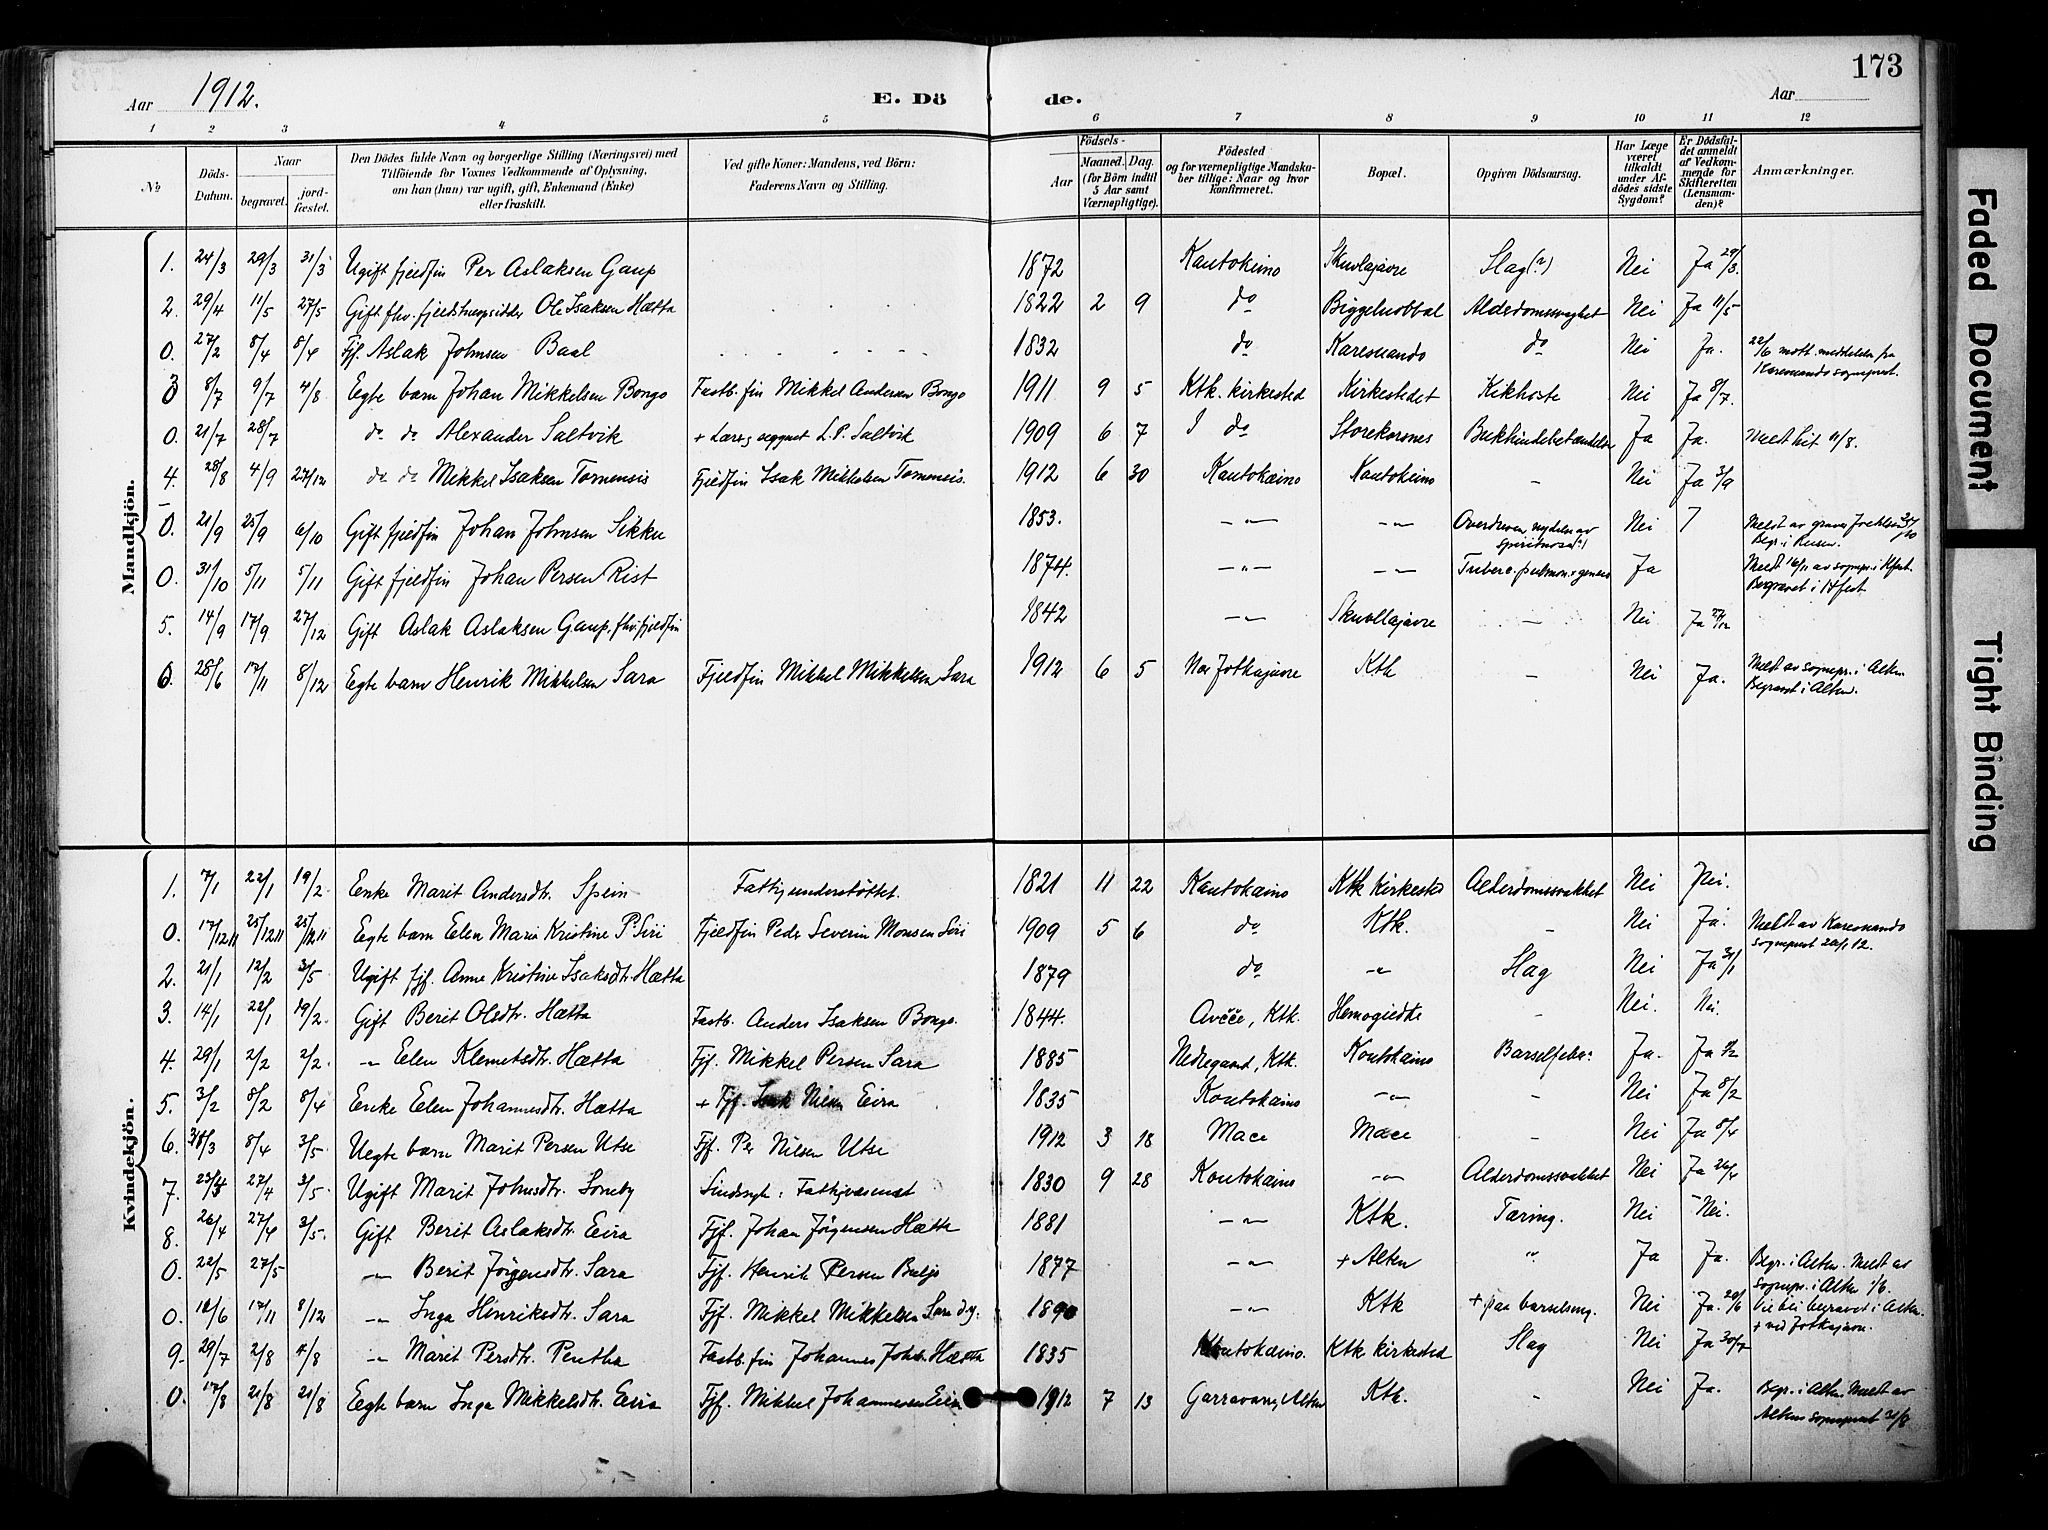 173
Aar 1912.
E. Dö
de.
Aar
1 2 3 4 5 6 7 8 9 10 11 12
No
Döds-Datum.
Naar
begravet.
jord-fæstet.
Den Dödes fulde Navn og borgerlige Stilling (Næringsvei) med
Tilföiende for Voxnes Vedkommende af Oplysning,
om han (hun) var ugift, gift, Enkemand (Enke)
eller fraskilt.
Ved gifte Koner: Mandens, ved Börn:
Faderens Navn og Stilling.
Födsels-
Aar
Maaned. Dag.
(for Börn indtil
5 Aar samt
Værnepligtige).
Födested
og for værnepligtige Mandska-
ber tillige: Naar og hvor
konfirmeret.
Bopæl.
Opgiven Dödsaarsag.
Har Læge
været
tilkaldt
under Af-
dödes sidste
Sygdom?
Er Dödsfal-
det anmeldt
af Vedkom-
mende for
Skifteretten
(Lensman-
den)?
Anmærkninger.
Mandkjön.
1. 24/3 29/3 31/3 Ugift fjeldfin Per Aslaksen Gaup 1872 Kautokeino Skuolajavre Slag (?) Nei Ja 29/3.
2. 29/4 11/5 27/5 Gift fhv. fjeldstuopsidder Ole Isaksen Hætta 1822 2 9 do Biggeluobbal Alderdomssvaghet Nei Ja 11/5
0. 27/2 8/4 8/4 Fjf. Aslak Johnsen Baal 1832 do Karesuando do Nei Ja. 22/6 mott. meddelelse fra
Karesuando sogneprest.
3 8/7 9/7 4/8 Egte barn Johan Mikkelsen Bongo Fastb. fin Mikkel Andersen Bongo 1911 9 5 Ktk. kirkested Kirkestedet Kikhoste Nei Ja 8/7.
0. 21/7 28/7 do do Alexander Saltvik L. P. Saltvik 1909 6 7 do Storekorsnes Bukhindebetændelse Ja Ja. Meldt hit 11/8.
4. 28/8 4/9 27/12 do do Mikkel Isaksen Tornensis Fjeldfin Isak Mikkelsen Tornensis. 1912 6 30 Kautokeino Kautokeino - Nei Ja 3/9
0. 21/9 25/9 6/10 Gift fjeldfin Johan Johnsen Sikku 1853. -"- -"- Overdreven nydelse av
spirituosa (?) Nei
Begr. i Reisen.
0. 31/10 5/11 5/11 Gift fjeldfin Johan Persen Rist 1874. -"- -"- Ja Meldt 16/11 av sognepr. i Hfest.
Begravet i Hfest.
5. 14/9 17/9 27/12 Gift Aslak Aslaksen Gaup, fhv. fjeldfin 1842 -"- Skuollajavre - Nei Ja 27/12
0. 28/6 17/11 8/12 Egte barn Henrik Mikkelsen Sara Fjeldfin Mikkel Mikkelsen Sara 1912 6 5 Ved Jotkajavre Ktk - Nei Ja. Meldt av sognepr. i Alten.
Begravet i Alten.
Kvindekjön.
1. 7/1 22/1 19/2 Enke Marit Andersdtr. Spein Fattigunderstöttet. 1821 11 22 Kautokeino Ktk Kirkested Alderdomssvakhet Nei Nei.
0. 17/12 11 25/12 11 25/12 11 Egte barn Elen Marie Kristine P. Siri Fjeldfin Peder Severin Monsen Siri 1909 5 6 do Ktk. - Nei Ja. Meldt av Karesuando
sogneprest 20/1 12.
2. 21/1 12/2 3/5 Ugift fjf. Anne Kristine Isaksdtr. Hætta 1879 do -"- Slag Nei Ja 31/1
3. 14/1 22/1 19/2. Gift Berit Olsdtr. Hætta Fastb. Anders Isaksen Bongo. 1844. Avčče, Ktk. Hemogiedde - Nei. Nei.
4. 29/1 2/2 2/2 -"- Elen Klemetsdtr. Hætta Fjf. Mikkel Persen Sara 1885 Nedregaard, Ktk. Kautokeino Barselfeber Ja. Ja 2/2
5. 3/2 8/2 8/4 Enke Elen Johannesdtr. Hætta + Fjf. Isak Nilsen Eira 1835 Kautokeino -"- - Nei Ja 8/2
6. 31/3 8/4 3/5 Uegte barn Marit Persen Utse Fjf. Per Nilsen Utse 1912 3 18 Mace Mace - Nei Ja 8/4
7. 23/4 27/4 3/5. Ugift Marit Johnsdtr. Somby 1830 9 28 Kautokeino -"- Alderdomssvakhet Nei Ja 26/4
8. 26/4 27/4 3/5. Gift Berit Aslaksdtr. Eira Fjf. Johan Jörgensen Hætta 1881 -"- Ktk. Tæring. Nei Nei.
0. 22/5 27/5 -"- Berit Jörgensdtr. Sara Fjf. Henrik Persen Buljo 1877 -"- + Alten " Ja Ja. Begr. i Alten. Meldt av
sognepr. i Alten 1/6.
0. 10/6 17/11 8/12 -"- Inga Hinriksdtr. Sara Fjf. Mikkel Mikkelsen Sara d.y. 1890 -"- Ktk + paa barselseng. Nei Ja. 20/6 begravet i Alten.
+ ved Jotkajavre.
9. 29/7 2/8 4/8 -"- Marit Persdtr. Pentha Fastb. fin Johannes Johs. Hætta 1835 Kautokeino. Ktk. Kirkested Slag Nei Ja 30/7
0. 17/8 21/8 21/8 Egte barn Inga Mikkelsdtr. Eira Fjf. Mikkel Johannesen Eira 1912 7 13 Garravang Alten Ktk. - Nei Ja. Begr. i Alten. Meldt av
Altens sogneprest 21/8
Faded Document
Tight Binding